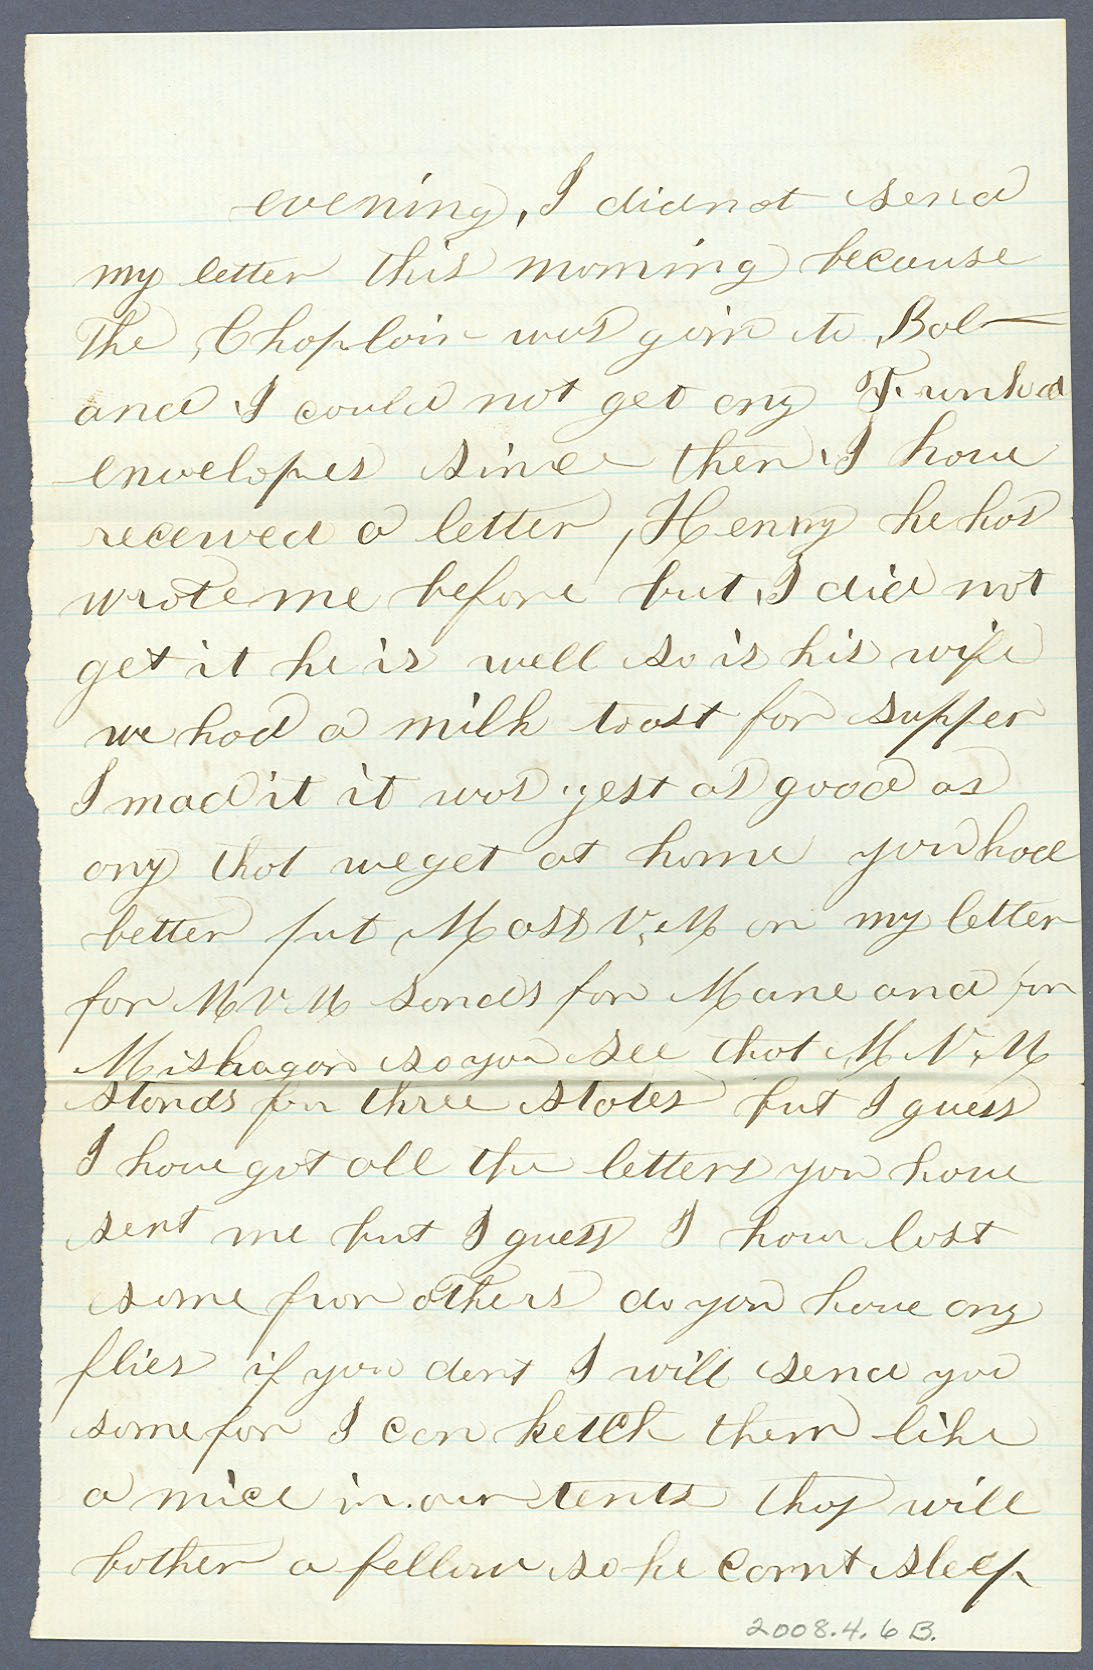 evening, I didnot send
my letter this morning because
The Choploin wos goin to Bal—
and I could not get any Frunked
envelopes since then I have
received a letter, Henry he has
wrote me before but I did not
get it he is well so is his wife
we had a milk toast for supper
I mad it it was yest as good as
any that we get at home you had
better put Mass V. M on my letter
for M V M Sonds for Mane and for
Mishagan so you see that M V. M
stands for three states but I guess
I have got all the letters you have
sent me but I guess I have lost
some from others do you have any
flies if you dont I will send you
some for I can ketch them like
a mice in our tents thay will
bother a fellow so he carnt sleep
2008.4.6B.